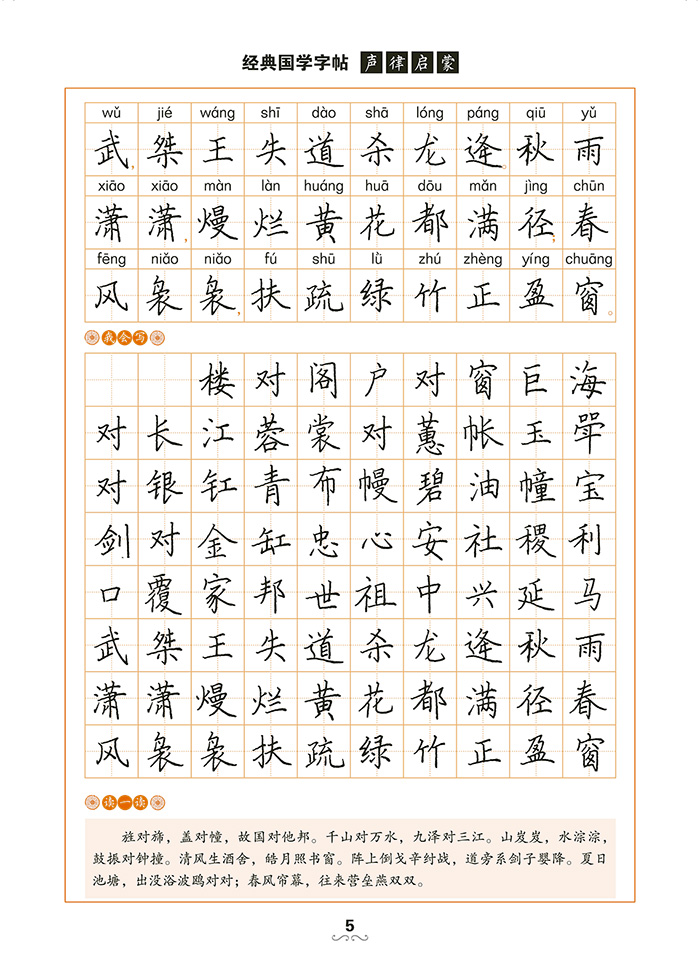 经典国学字帖 声律启蒙
wǔ jié wáng shī dào shā lóng páng qiū yǔ
武，桀王失道杀龙逄。秋雨
xiāo xiāo màn làn huáng huā dōu mǎn jìng chūn
潇潇，熳烂黄花都满径；春
fēng niǎo niǎo fú shū lǜ zhú zhèng yíng chuāng
风袅袅，扶疏绿竹正盈窗。
我会写
楼对阁户对窗巨海
对长江蓉裳对蕙帐玉斝
对银釭青布幔碧油幢宝
剑对金缸忠心安社稷利
口覆家邦世祖中兴延马
武桀王失道杀龙逄秋雨
潇潇熳烂黄花都满径春
风袅袅扶疏绿竹正盈窗
读一读
旌对旆，盖对幢，故国对他邦。千山对万水，九泽对三江。山岌岌，水淙淙，
鼓振对钟撞。清风生酒舍，皓月照书窗。阵上倒戈辛纣战，道旁系剑子婴降。夏日
池塘，出没浴波鸥对对；春风帘幕，往来营垒燕双双。
5